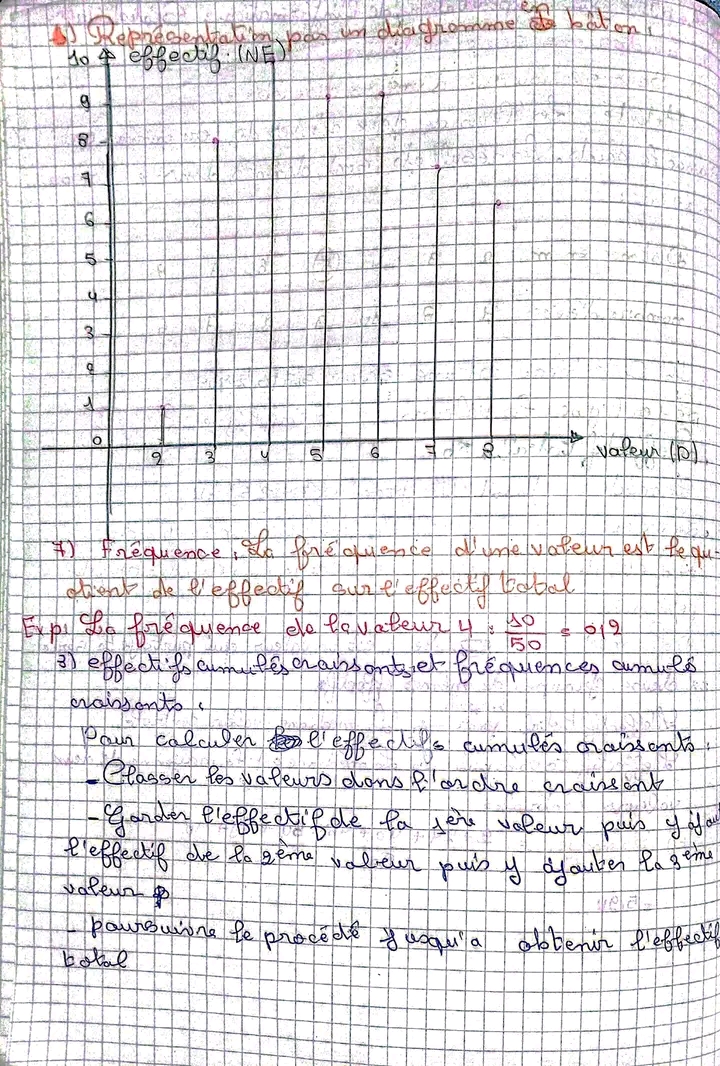 6) Représentation par un diagramme en bâton.
10 effectif (NE)
9
8
7
6
5
4
3
2
1
0
2 3 4 5 6 7 8 valeur (D)
7) Fréquence : La fréquence d'une valeur est le quo-
tient de l'effectif sur l'effectif total
Exp: La fréquence de la valeur 4 : 10/50 = 0,2
3) effectifs cumulés craissants et fréquences cumulé
craissants.
Pour calculer l'effectifs cumulés craissants :
- Classer les valeurs dans l'ordre craissant
- Garder l'effectif de la 1ère valeur puis y ajou
l'effectif de la 2ème valieur puis y ajauter la 3ème
valeur
- poursuivre le procédé jusqu'a obtenir l'effectif
total